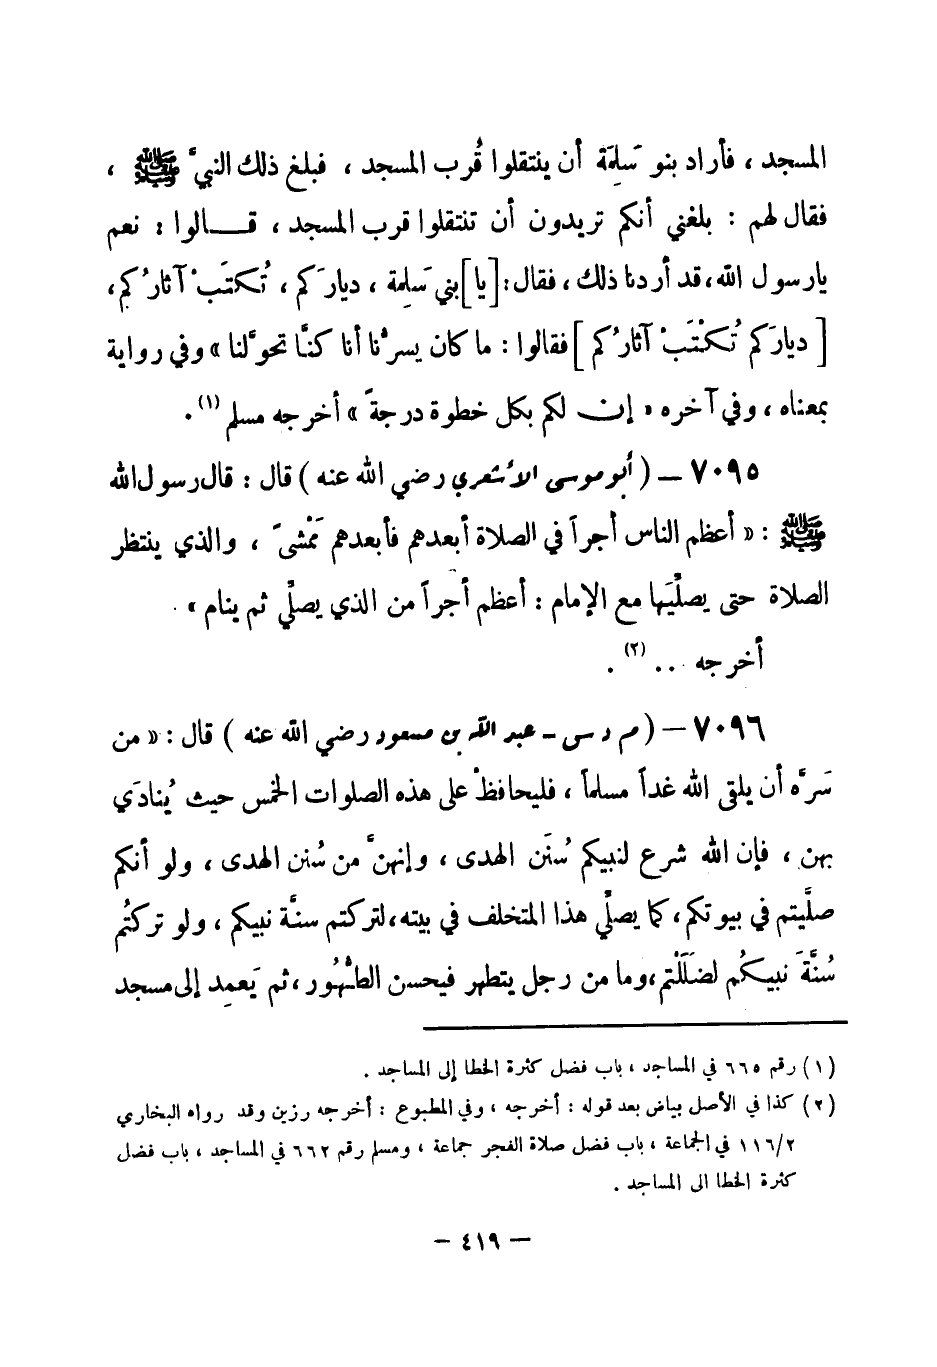 المسجد ، فأراد بنو سَلِمَة أن ينتقلوا قُرب المسجد ، فبلغ ذلك النبيَّ ﷺ ،
فقال لهم : بلغني أنكم تريدون أن تنتقلوا قرب المسجد ، قــالوا : نعم
يارسول الله ، قد أردنا ذلك ، فقال : [يا] بني سَلِمة ، ديارَكم ، تُكتَبْ آثارُكم ،
[ ديارَكم تُكْتَبْ آثارُكم ] فقالوا : ما كان يسرُّنا أنا كنَّا تحوَّلنا » وفي رواية
بمعناه ، وفي آخره « إن لكم بكل خطوة درجةً » أخرجه مسلم (١) .
٧٠٩٥ – ( أبو موسى الأشعري رضي الله عنه ) قال : قال رسول الله
ﷺ : « أعظم الناس أجراً في الصلاة أبعدهم فأبعدهم مَمْشىً ، والذي ينتظر
الصلاة حتى يصلِّيَها مع الإمام : أعظم أجراً من الذي يصلِّي ثم ينام » .
أخرجه ... (٢) .
٧٠٩٦ – ( م د س - عبد الله بن مسعود رضي الله عنه ) قال : « من
سَرَّه أن يلقى الله غداً مسلماً ، فليحافظْ على هذه الصلوات الخمس حيث يُنادَي
بهن ، فإن الله شرع لنبيكم سُنَن الهدى ، وإنهنَّ من سُنن الهدى ، ولو أنكم
صلَّيتم في بيوتكم ، كما يصلِّي هذا المتخلف في بيته ، لتركتم سنَّة نبيكم ، ولو تركتُم
سُنَّةَ نبيكُم لضَلَلْتم ، وما من رجل يتطهر فيحسن الطُّهُور ، ثم يَعمِد إلى مسجد
(١) رقم ٦٦٥ في المساجد ، باب فضل كثرة الخطا إلى المساجد .
(٢) كذا في الأصل بياض بعد قوله : أخرجه ، وفي المطبوع : أخرجه رزين وقد رواه البخاري
٢/١١٦ في الجماعة ، باب فضل صلاة الفجر جماعة ، ومسلم رقم ٦٦٢ في المساجد ، باب فضل
كثرة الخطا الى المساجد .
– ٤١٩ –